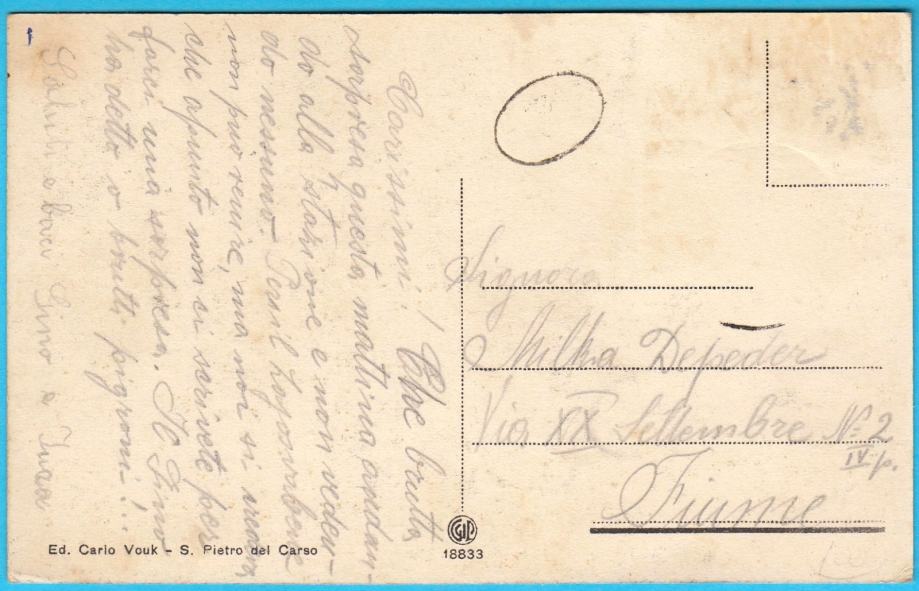 Carissimi! Che bruta
sorpresa questa mattina andan-
do alla stazione e non veden-
do nessuno. Paul
non può venire, ma noi si credeva
che apunto non ci scrivete per
farci una sorpresa. Il Gino
ha detto o bruti pigroni!..
Saluti e baci Gino e
Signora
Milka Depeder
Via XX Settembre No 2
IV p.
Fiume
Ed. Carlo Vouk - S. Pietro del Carso
18833